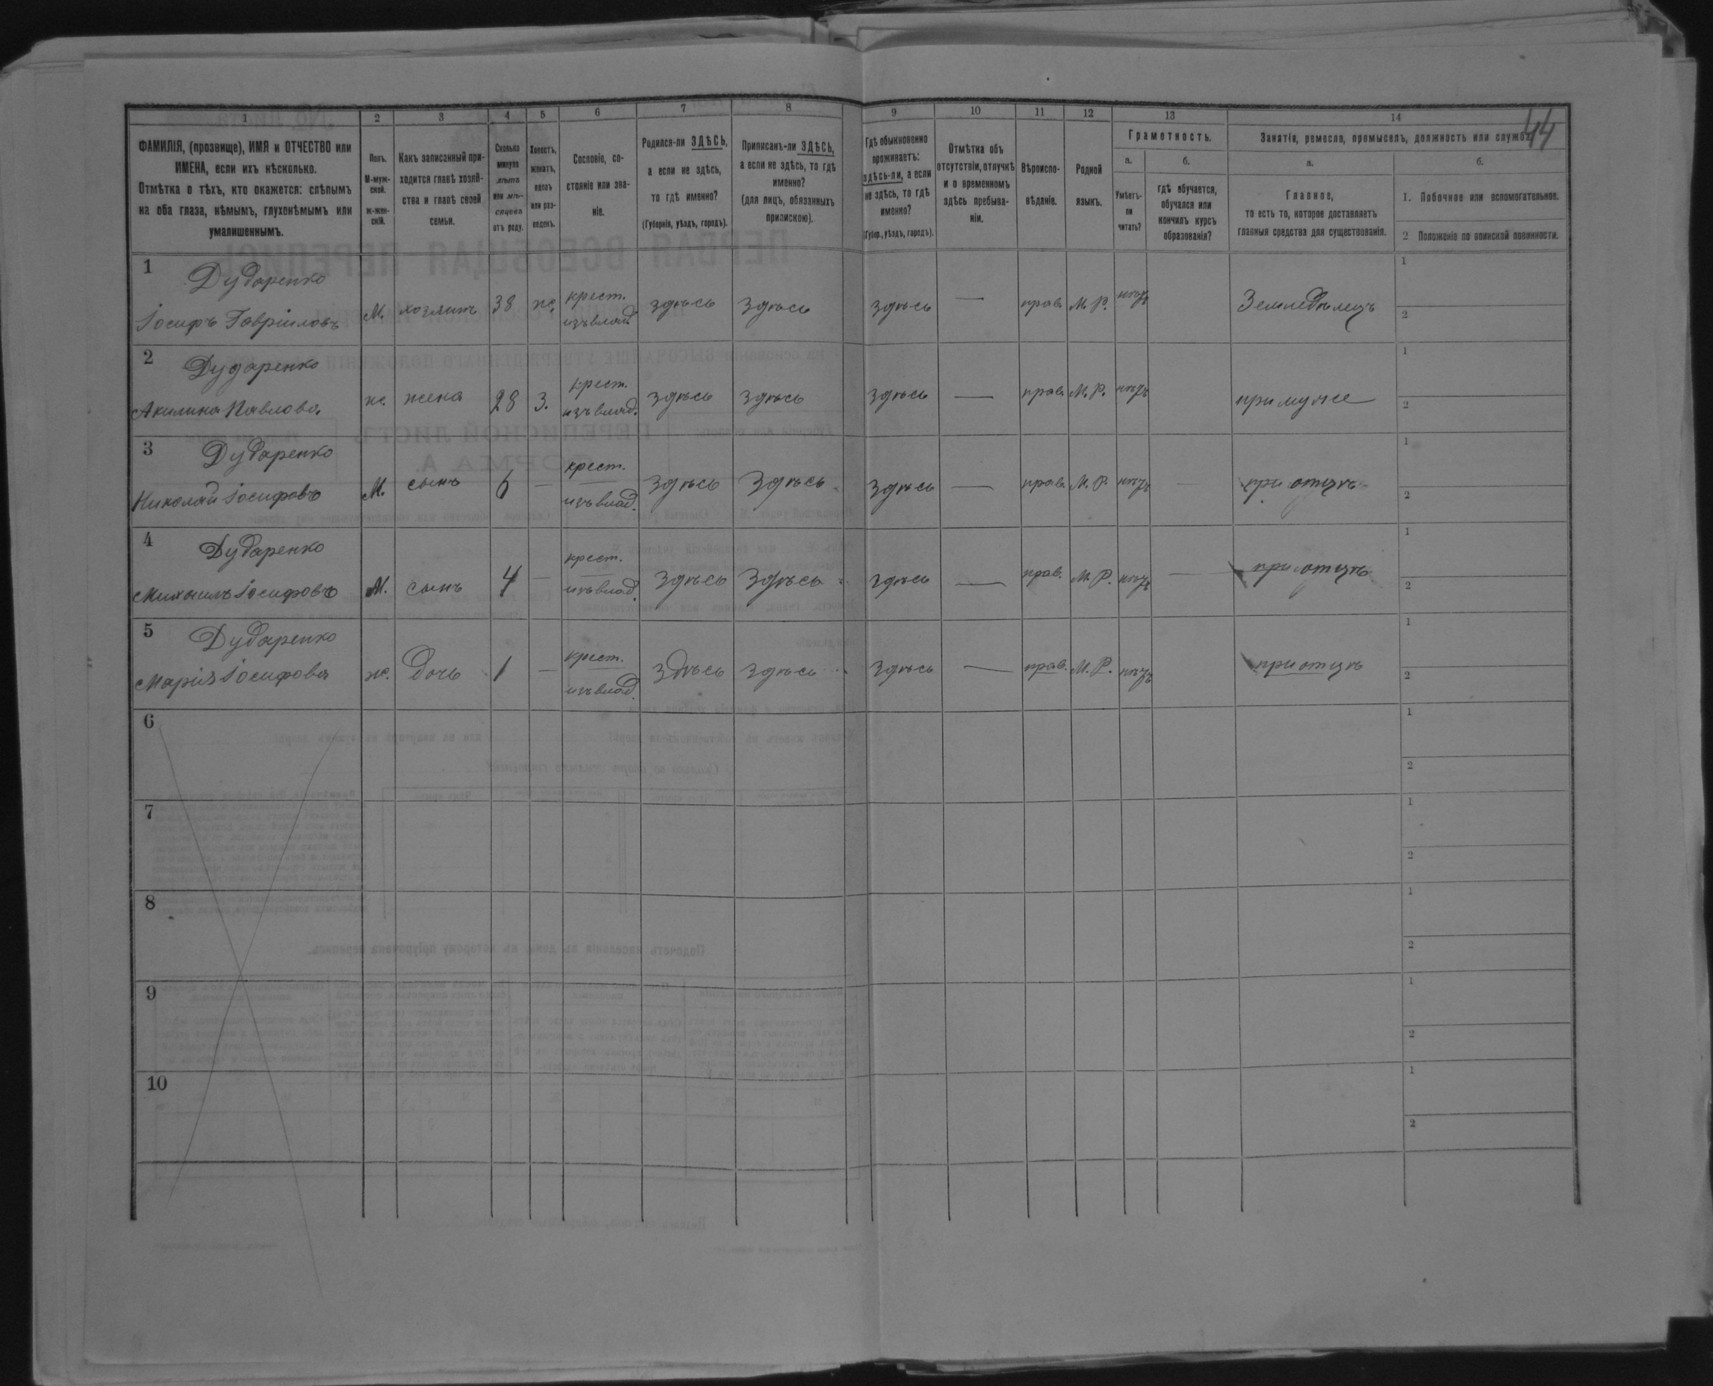 44
1 2 3 4 5 6 7 8 9 10 11 12 13 14
ФАМИЛІЯ, (прозвище), ИМЯ и ОТЧЕСТВО или
ИМЕНА, если ихъ нѣсколько.
Отмѣтка о тѣхъ, кто окажется: слѣпымъ
на оба глаза, нѣмымъ, глухонѣмымъ или
умалишеннымъ.
Полъ.
М-муж-
ской.
ж-жен-
скій.
Какъ записанный при-
ходится главѣ хозяй-
ства и главѣ своей
семьи.
Сколько
минуло
лѣтъ
или мѣ-
сяцевъ
отъ роду.
Холостъ,
женатъ,
вдовъ
или раз-
веденъ.
Сословіе, со-
стояніе или зва-
ніе.
Родился-ли ЗДѢСЬ,
а если не здѣсь,
то гдѣ именно?
(Губернія, уѣздъ, городъ).
Приписанъ-ли ЗДѢСЬ,
а если не здѣсь, то гдѣ
именно?
(для лицъ, обязанныхъ
припискою).
Гдѣ обыкновенно
проживаетъ:
здѣсь-ли, а если
не здѣсь, то гдѣ
именно?
(Губер., уѣздъ, городъ).
Отмѣтка объ
отсутствіи, отлучкѣ
и о временномъ
здѣсь пребыва-
ніи.
Вѣроиспо-
вѣданіе.
Родной
языкъ.
Грамотность.
а.
Умѣетъ-
ли
читать?
б.
гдѣ обучается,
обучался или
кончилъ курсъ
образованія?
Занятіе, ремесло, промыселъ, должность или служба.
а.
Главное,
то есть то, которое доставляетъ
главныя средства для существованія.
б.
1. Побочное или вспомогательное.
2 Положеніе по воинской повинности.
1 Дударенко
Іосифъ Гавріиловъ М. хозяинъ 38 ж. крест. изъ влад. здѣсь здѣсь здѣсь — прав. М. Р. нѣтъ Земледѣлецъ 1 2
2 Дударенко
Акилина Павлова ж. жена 28 З. крест. изъ влад. здѣсь здѣсь здѣсь — прав. М. Р. нѣтъ при мужѣ 1 2
3 Дударенко
Николай Іосифовъ М. сынъ 6 — крест. изъ влад. здѣсь здѣсь здѣсь — прав. М. Р. нѣтъ — при отцѣ 1 2
4 Дударенко
Михаилъ Іосифовъ М. сынъ 4 — крест. изъ влад. здѣсь здѣсь здѣсь — прав. М. Р. нѣтъ — при отцѣ 1 2
5 Дударенко
Марія Іосифова ж. Дочь 1 — крест. изъ влад. здѣсь здѣсь здѣсь — прав. М. Р. нѣтъ при отцѣ 1 2
6 1 2
7 1 2
8 1 2
9 1 2
10 1 2